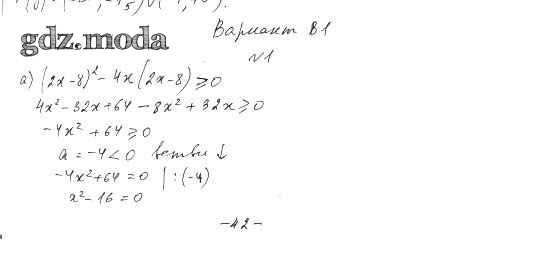 gdz.moda
Вариант В1
№1
а) (2x-8)² - 4x(2x-8) ≥ 0
4x² - 32x + 64 - 8x² + 32x ≥ 0
-4x² + 64 ≥ 0
a = -4 < 0 ветви ↓
-4x² + 64 = 0 | : (-4)
x² - 16 = 0
-42-